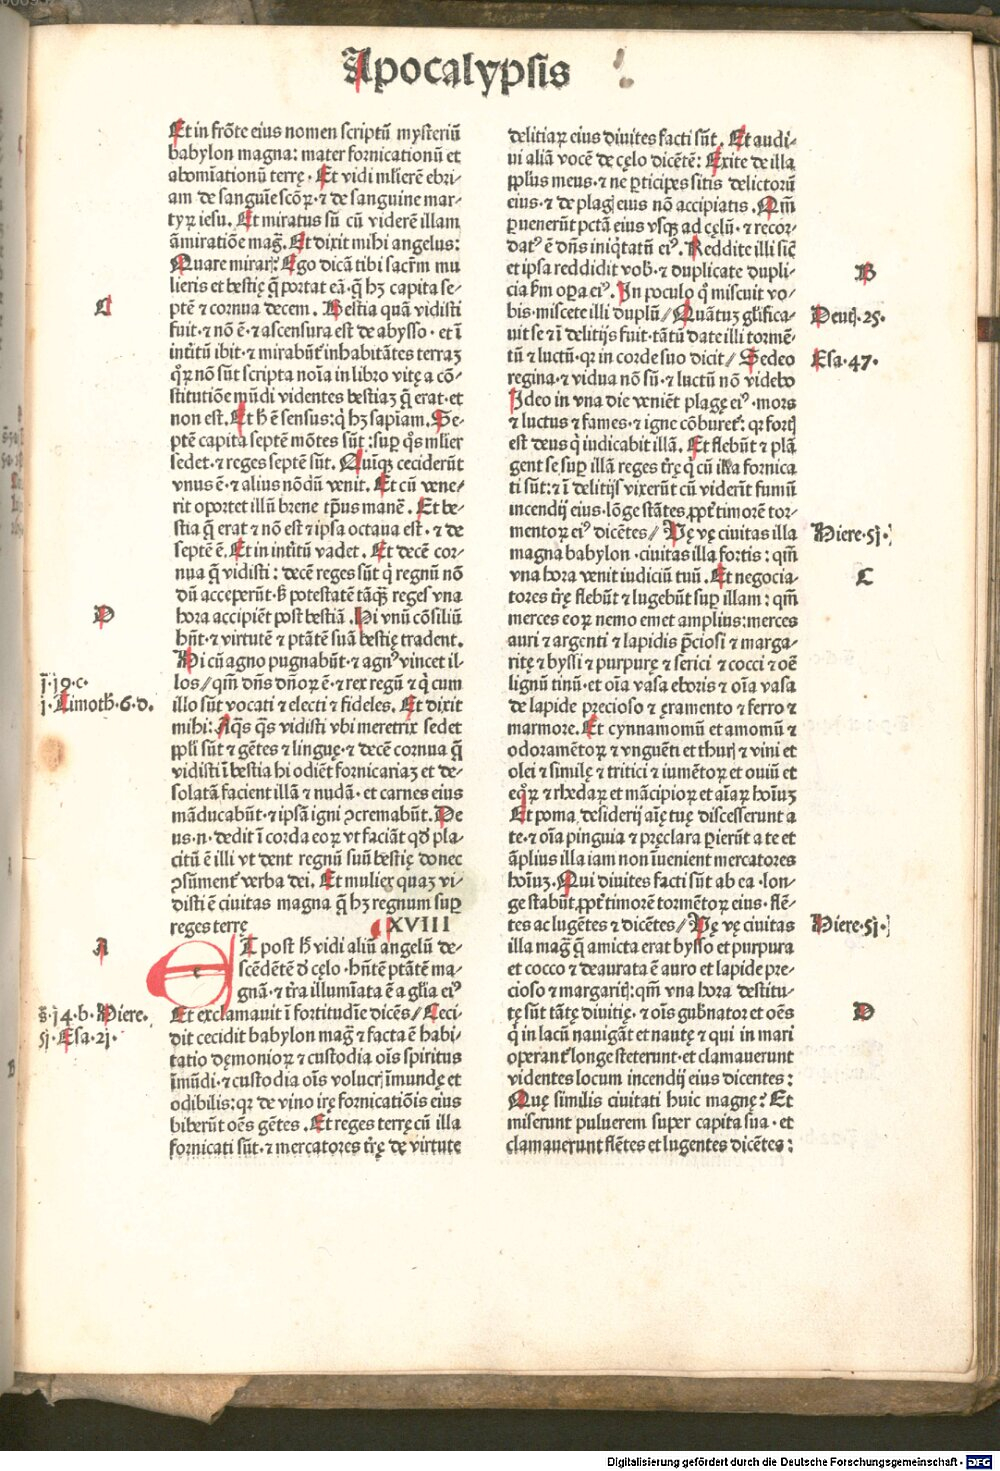 Apocalypsis
Et in frōte eius nomen scriptū mysteriū
babylon magna: mater fornicationū et
abomīationū terrę. Et vidi mlierē ebri-
am de sanguīe scōꝝ·⁊ de sanguine mar-
tyꝝ iesu. Et miratus sū cū viderē illam
āmiratiōe maḡ. Et dixit mihi angelus:
Quare miraris: Ego dicā tibi sacr̄m mu
lieris et bestię q̄ portat eā·q̄ hꝫ capita se-
C
ptē et cornua decem. Bestia quā vidisti
fuit·⁊ nō ē·⁊ ascensura est de abysso·et ī
intitū ibit·⁊ mirabūt̄ inhabitātes terraꝫ
qͦꝝ nō sūt scripta noīa in libro vitę a cō-
stitutiōe mūdi videntes bestiaꝫ q̄ erat·et
non est. Et h̄ ē sensus:q̇ hꝫ sapīam. Se-
ptē capita septē mōtes sūt:suꝑ qͦs mlier
sedet·⁊ reges septē sūt. Quīqꝫ ceciderūt
vnus ē·⁊ alius nōdū venit. Et cū vene-
rit oportet illū breue tp̄us manē. Et be-
stia q̄ erat ⁊ nō est ⁊ ipsa octaua est·⁊ de
septē ē. Et in intitū vadet. Et decē cor-
nua q̄ vidisti: decē reges sūt q̇ regnū nō
dū acceperūt·s̄ potestatē tāqꝫ reges vna
D
hora accipiēt post bestiā. Hi vnū cōsiliū
hn̄t·⁊ virtutē ⁊ ptātē suā bestię tradent.
Hi cū agno pugnabūt·⁊ agnꝰ vincet il-
j·19·c·
los//qm̄ dn̄s dn̄oꝝ ē·⁊ rex regū ⁊ q̇ cum
j·Timoth·6·d·
illo sūt vocati ⁊ electi ⁊ fideles. Et dixit
mihi: Aqͦs qͣs vidisti vbi meretrix sedet
ppli sūt ⁊ gētes ⁊ linguę·⁊ decē cornua q̄
vidisti ī bestia hi odiēt fornicariaꝫ et de-
solatā facient illā ⁊ nudā·et carnes eius
māducabūt·⁊ ipsā igni ɔcremabūt. De
us·n·dedit ī corda eoꝝ vt faciāt qd̄ pla-
citū ē illi vt dent regnū suū bestię donec
ɔsūment̄ verba dei. Et mulier quaꝫ vi-
disti ē ciuitas magna q̄ hꝫ regnum suꝑ
reges terrę XVIII
A
Et post h̄ vidi aliū angelū de-
scēdētē d̄ cęlo·hn̄tē ptātē ma-
gnā·⁊ tr̄a illumīata ē a glīa eiꝰ
s̄·14·b·Hiere·
Et exclamauit ī fortitudīe dicēs//Ceci-
5j·Esa·2j·
dit cecidit babylon maḡ ⁊ facta ē habi-
tatio dęmonioꝝ ⁊ custodia oīs spiritus
īmūdi·⁊ custodia oīs volucris īmundę et
odibilis:qꝛ de vino irę fornicatiōis eius
biberūt oēs gētes. Et reges terrę cū illa
fornicati sūt·⁊ mercatores tr̄ę de virtute
delitiaꝝ eius diuites facti sūt. Et audi-
ui aliā vocē de cęlo dicētē: Exite de illa
pp̄lus meus·⁊ ne ꝑticipes sitis delictorū
eius·⁊ de plagis eius nō accipiatis. Qm̄
ꝑuenerūt pctā eius vsqꝫ ad cęlū·⁊ recor-
datꝰ ē dn̄s iniq̇tatū eiꝰ. Reddite illi sic̄
et ipsa reddidit vob̄·⁊ duplicate dupli-
B
cia s̄m oꝑa eiꝰ. In poculo qͦ miscuit vo-
bis·miscete illi duplū//Quātuꝫ gl̄ifica-
Deut·25·
uit se ⁊ ī delitijs fuit·tātū date illi tormē-
tū ⁊ luctū·qꝛ in corde suo dicit//Sedeo
Esa·47·
regina·⁊ vidua nō sū·⁊ luctū nō videbo
Ideo in vna die veniēt plagę eiꝰ·mors
⁊ luctus ⁊ fames·⁊ igne cōburet̄: qꝛ fortis
est deus q̇ iudicabit illā. Et flebūt ⁊ plā
gent se suꝑ illā reges tr̄ę q̇ cū illa fornica
ti sūt:⁊ ī delitijs vixerūt cū viderīt fumū
incendij eius·lōge stātes ꝓpt̄ timorē tor-
mentoꝝ eiꝰ dicētes//Vę vę ciuitas illa
Hiere·5j·
magna babylon·ciuitas illa fortis: qm̄
vna hora venit iudiciū tuū. Et negocia-
C
tores tr̄ę flebūt ⁊ lugebūt suꝑ illam: qm̄
merces eoꝝ nemo emet amplius:merces
auri ⁊ argenti ⁊ lapidis p̄ciosi ⁊ marga-
ritę ⁊ byssi ⁊ purpurę ⁊ serici ⁊ cocci ⁊ oē
lignū tinū·et oīa vasa eboris ⁊ oīa vasa
de lapide precioso ⁊ ęramento ⁊ ferro ⁊
marmore. Et cynnamomū et amomū ⁊
odoramētoꝝ ⁊ vnguēti et thuris ⁊ vini et
olei ⁊ similę ⁊ tritici ⁊ iumētoꝝ et ouiū et
eqͦꝝ ⁊ rhedaꝝ et mācipioꝝ et aīaꝝ hoīuꝫ
Et poma desiderij aīę tuę discesserunt a
te·⁊ oīa pinguia ⁊ pręclara ꝑierūt a te et
āplius illa iam non īuenient mercatores
hoīuꝫ. Qui diuites facti sūt ab ea·lon-
ge stabūt ꝓpt̄ timorē tormētoꝝ eius·flē-
tes ac lugētes ⁊ dicētes//Vę vę ciuitas
Hiere·5j·
illa maḡ q̄ amicta erat bysso et purpura
et cocco ⁊ deaurata ē auro et lapide pre-
cioso ⁊ margaritis:qm̄ vna hora destitu-
tę sūt tātę diuitię·⁊ oīs gub̄nator et oēs
D
q̇ in lacū nauigāt et nautę ⁊ qui in mari
operant̄ longe steterunt·et clamauerunt
videntes locum incendij eius dicentes:
Quę similis ciuitati huic magnę? Et
miserunt puluerem super capita sua·et
clamauerunt flētes et lugentes dicētes:
Digitalisierung gefördert durch die Deutsche Forschungsgemeinschaft - DFG